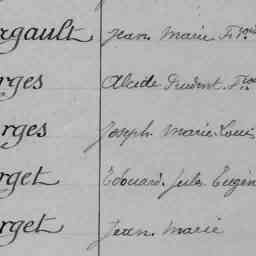 rgault Jean Marie Fs
rges Alcide Prudent
rges Joseph Marie Louis
rget Edouard Jules Eugèn
rget Jean Marie